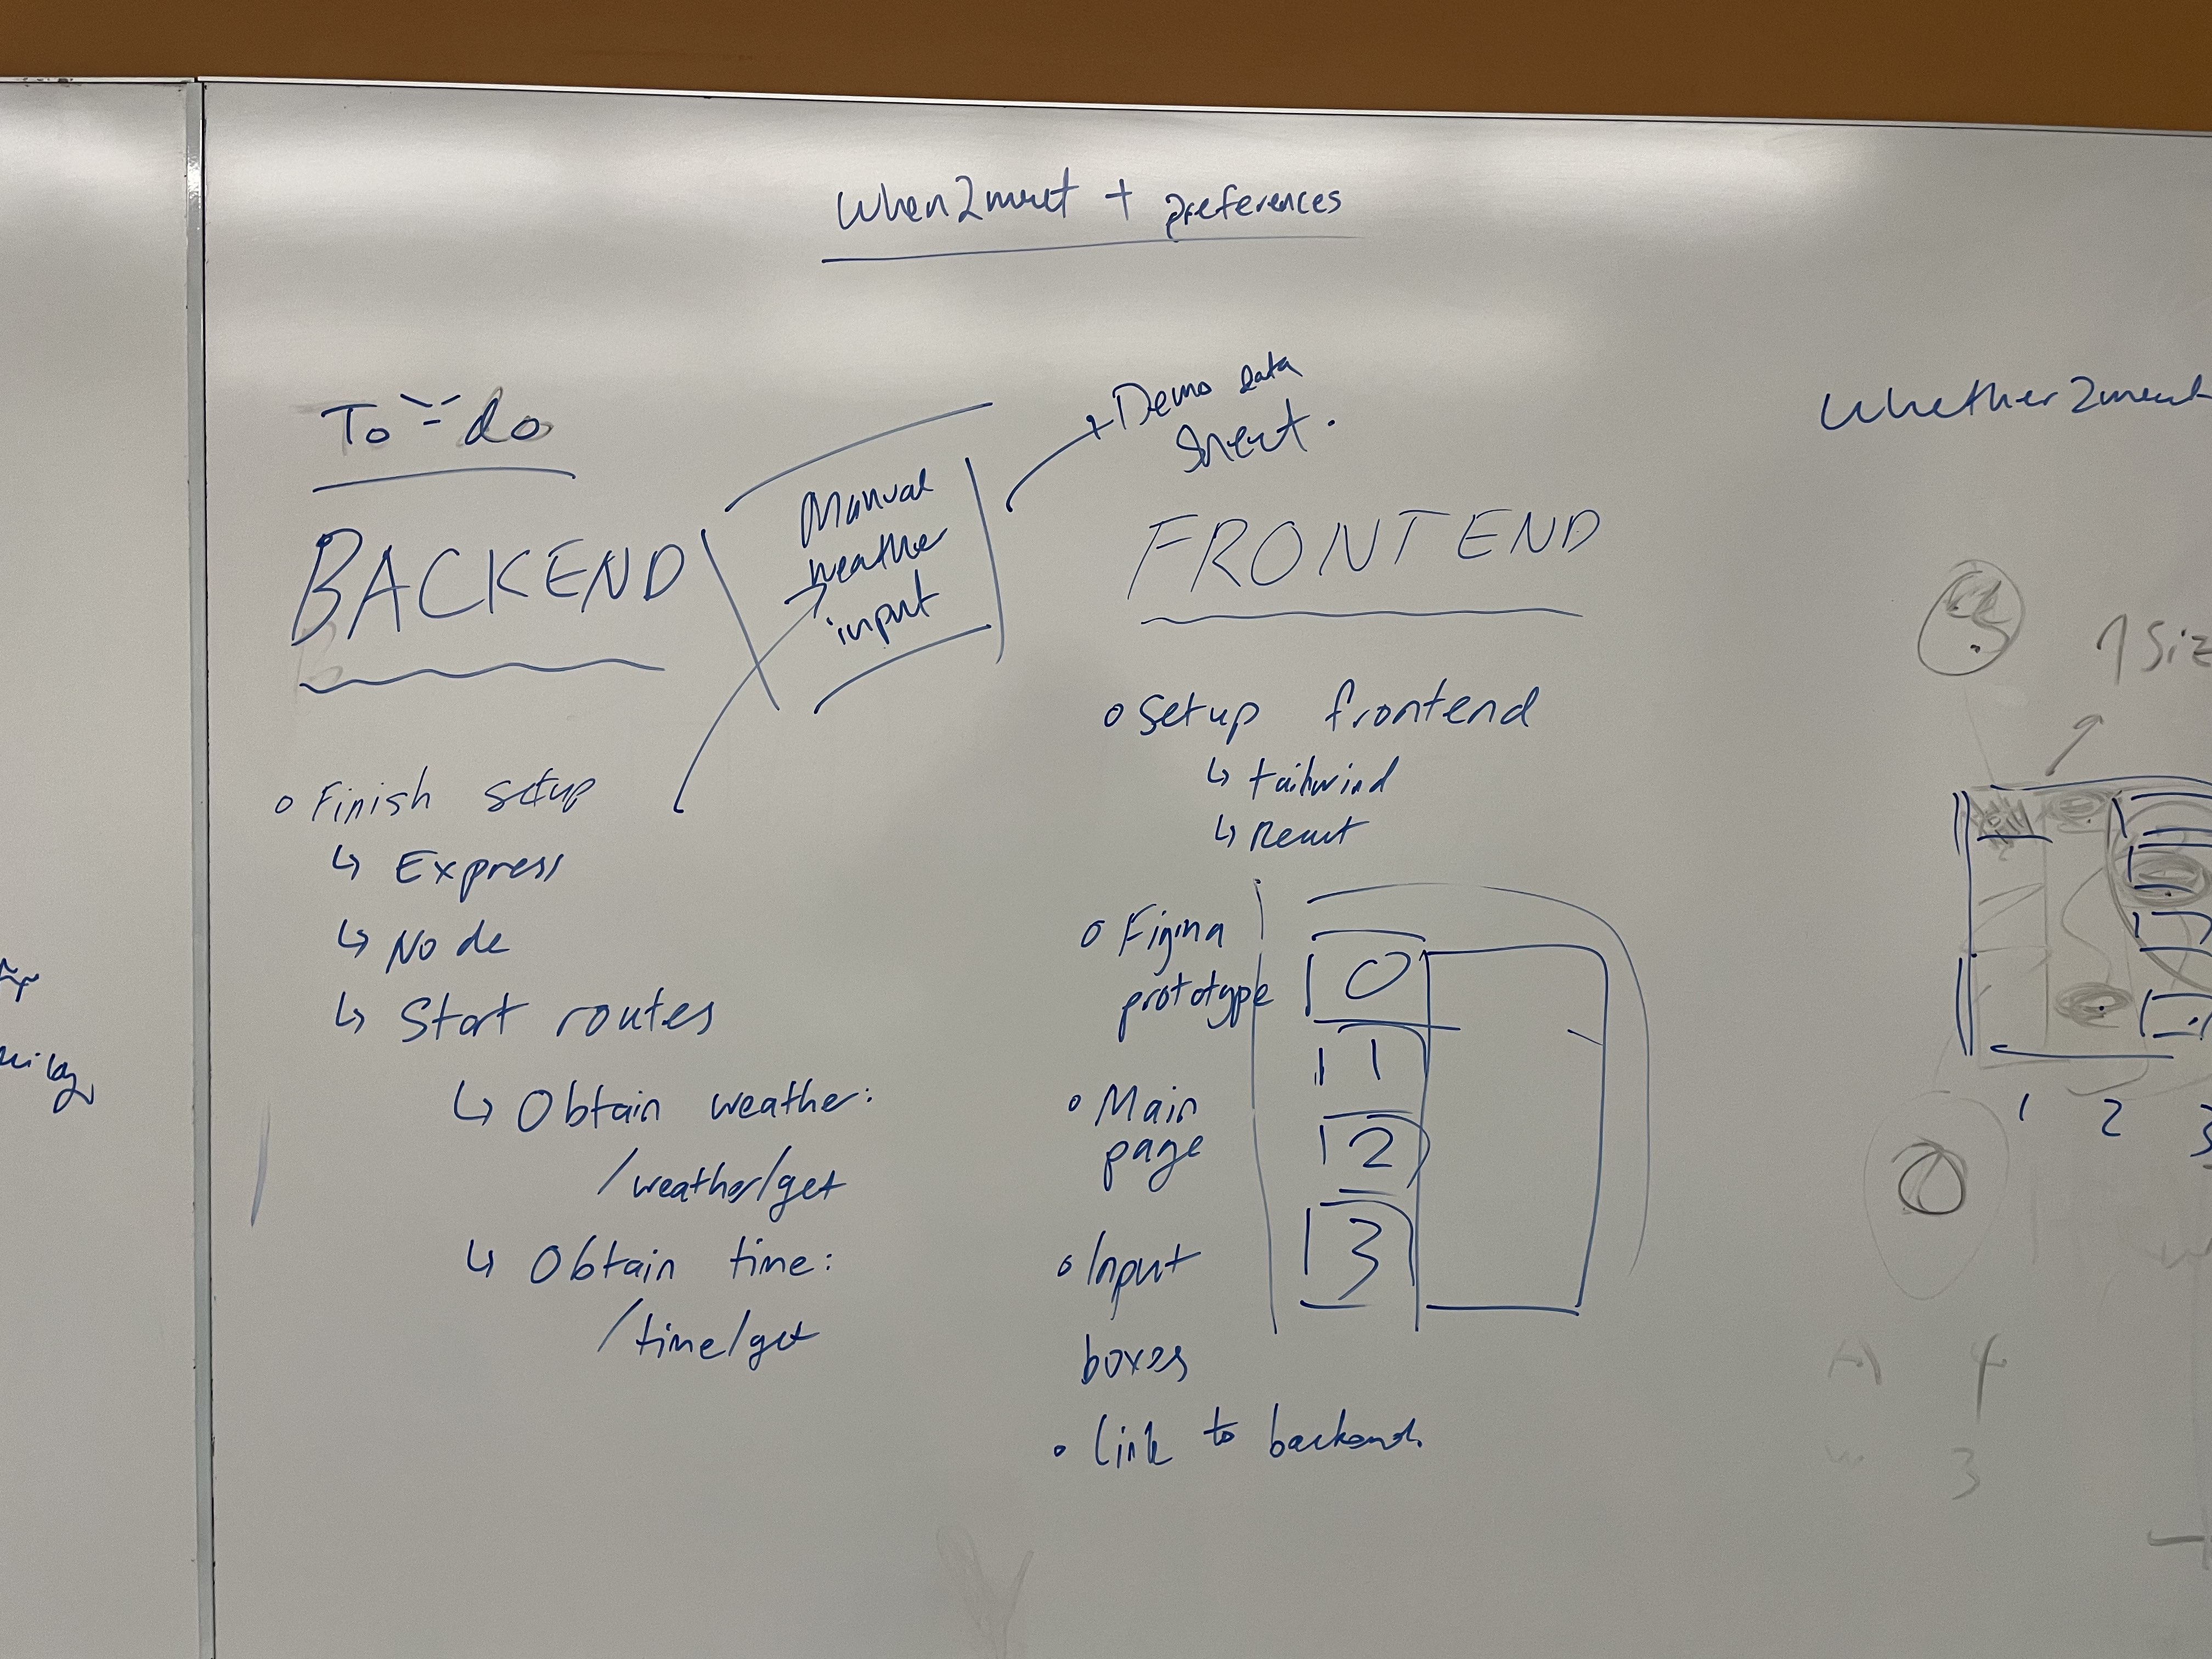 When2meet + preferences
To-do
BACKEND
Manual
weather
input
Demo data
Sheet.
FRONTEND
Whether2meet
Finish setup
↳ Express
↳ Node
↳ Start routes
↳ Obtain weather:
/weather/get
↳ Obtain time:
/time/get
Setup frontend
↳ tailwind
↳ React
Figma
prototype
Main
page
Input
boxes
Link to backend.
0
1
2
3
1 2 3
4
3